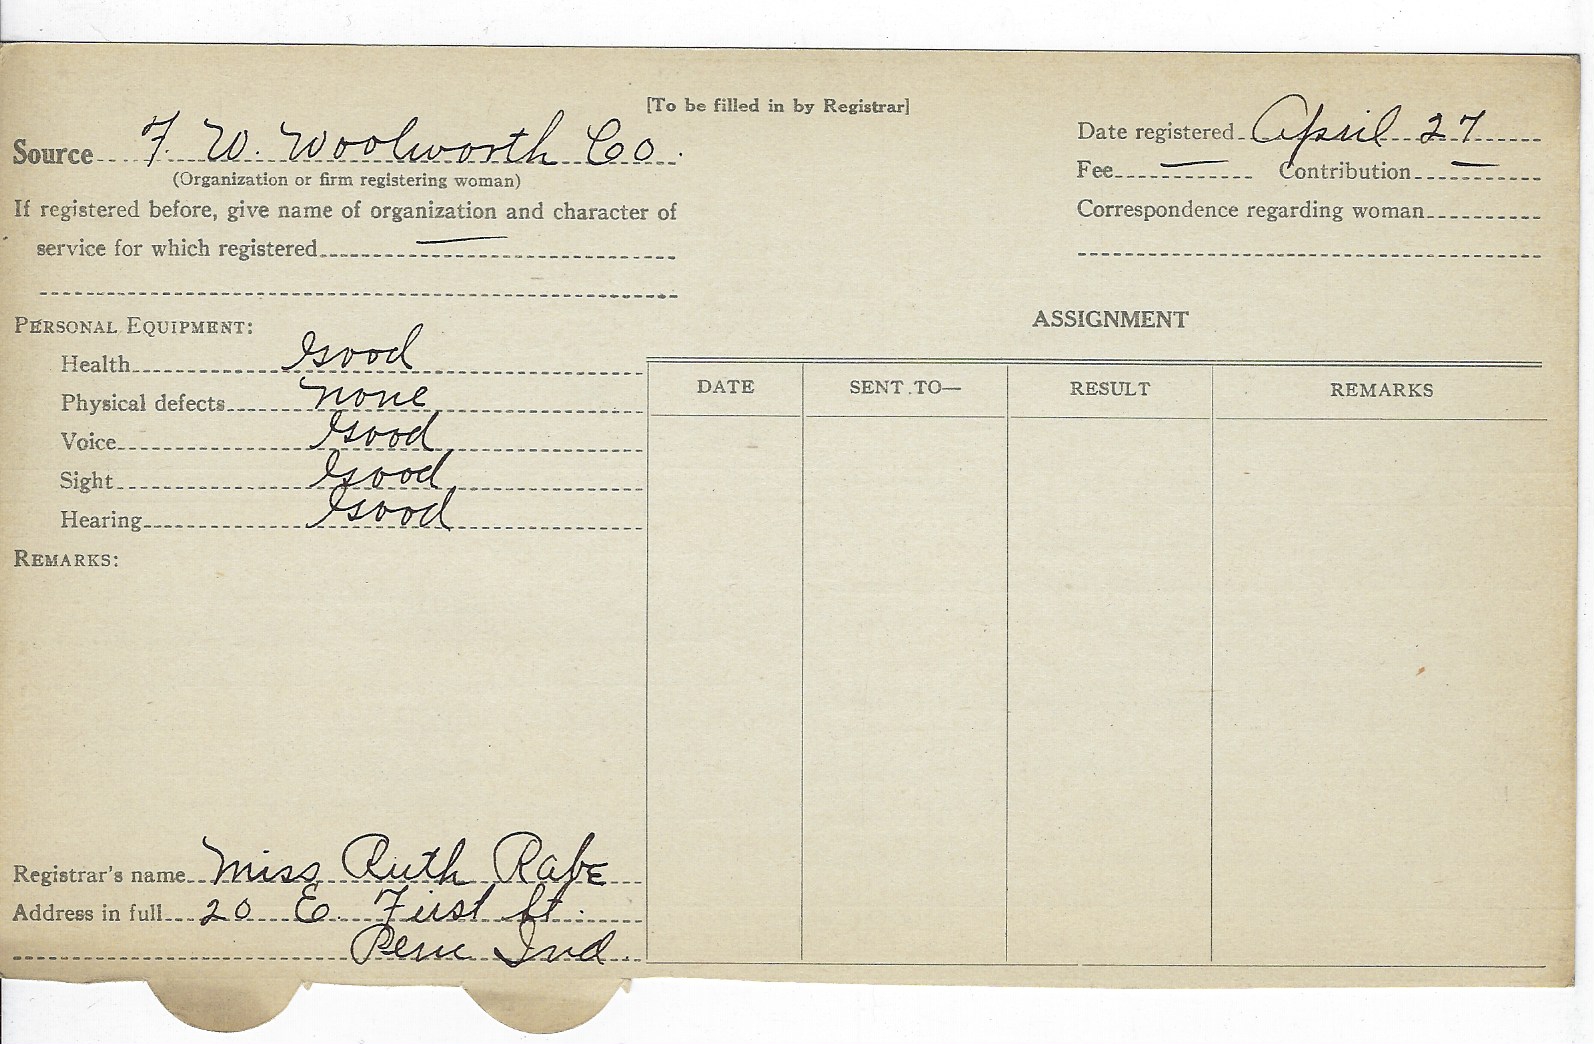 [To be filled in by Registrar]
Source F. W. Woolworth Co.
(Organization or firm registering woman)
If registered before, give name of organization and character of
service for which registered —
Date registered April 27
Fee — Contribution —
Correspondence regarding woman
PERSONAL EQUIPMENT:
Health Good
Physical defects none
Voice Good
Sight Good
Hearing Good
REMARKS:
Registrar's name Miss Ruth Rabe
Address in full 20 E. First St.
Peru Ind.
ASSIGNMENT
DATE SENT TO— RESULT REMARKS